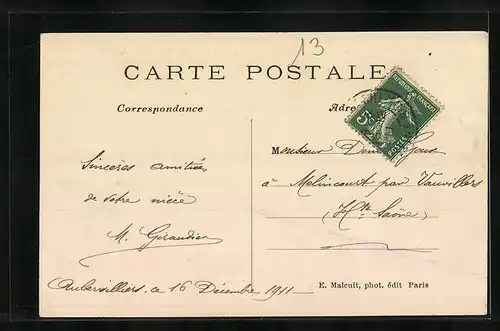 13
CARTE POSTALE
Correspondance
REPUBLIQUE FRANÇAISE
5c
POSTES
Monsieur
Sincères amitiés
à Melincourt par Vauvillers
de votre nièce
(Hte Saône)
M. Geraudier
Aubervilliers, ce 16 Décembre 1911
E. Malcuit, phot. édit Paris